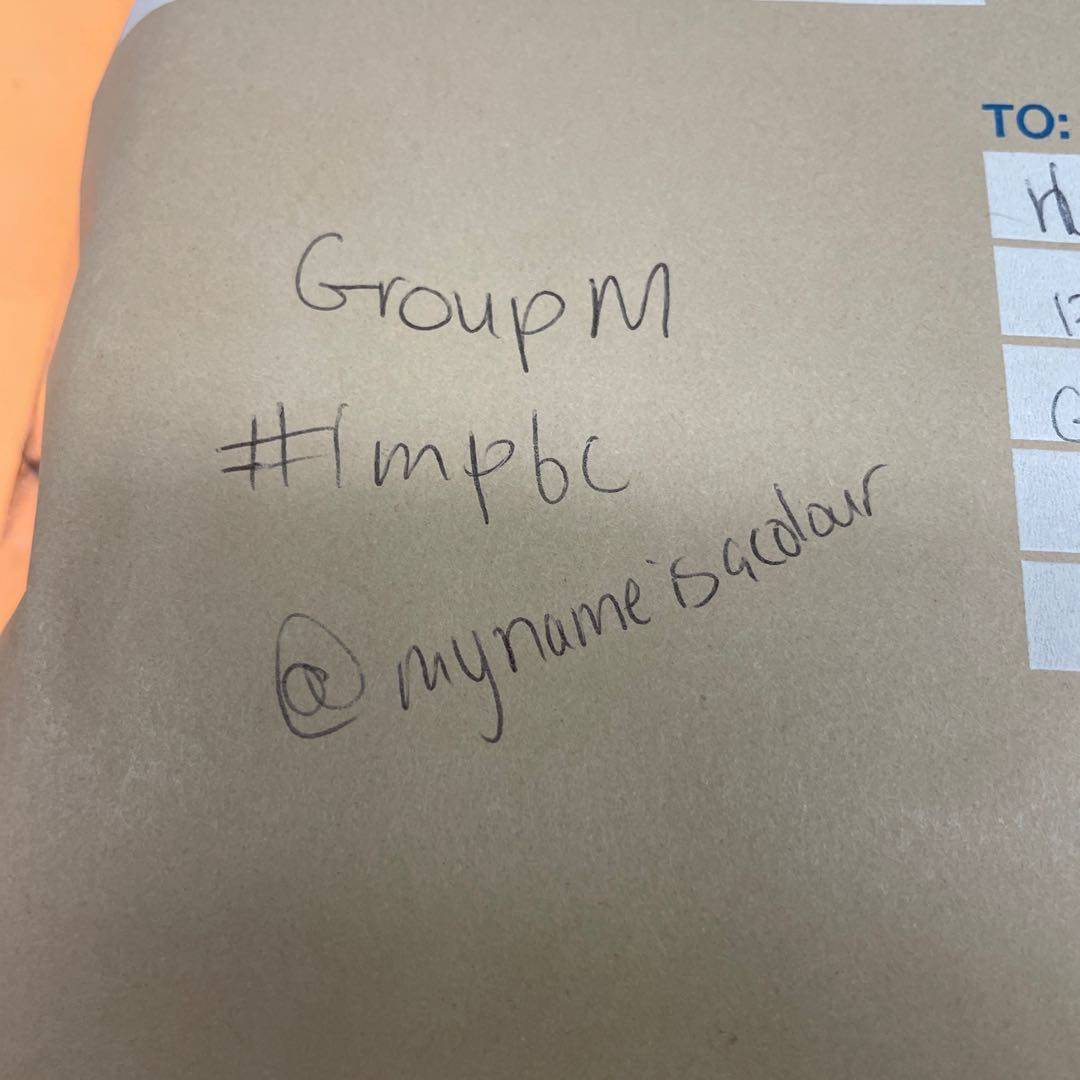 TO:
Group M
#1mpbc
@mynameisacolour